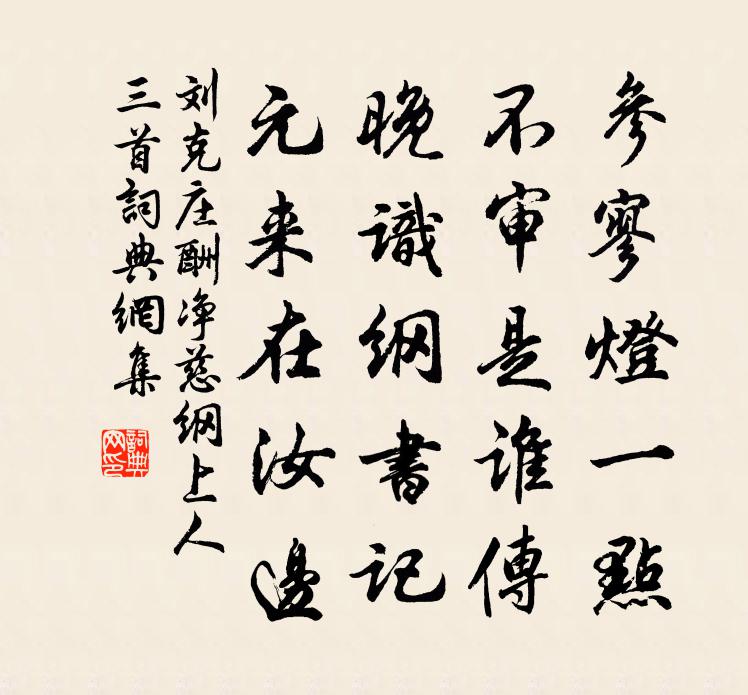 参寥燈一點
不审是谁傳
晚識纲書记
元来在汝邊
刘克庄酬净慈纲上人
三首詞典網集
詞典
网印